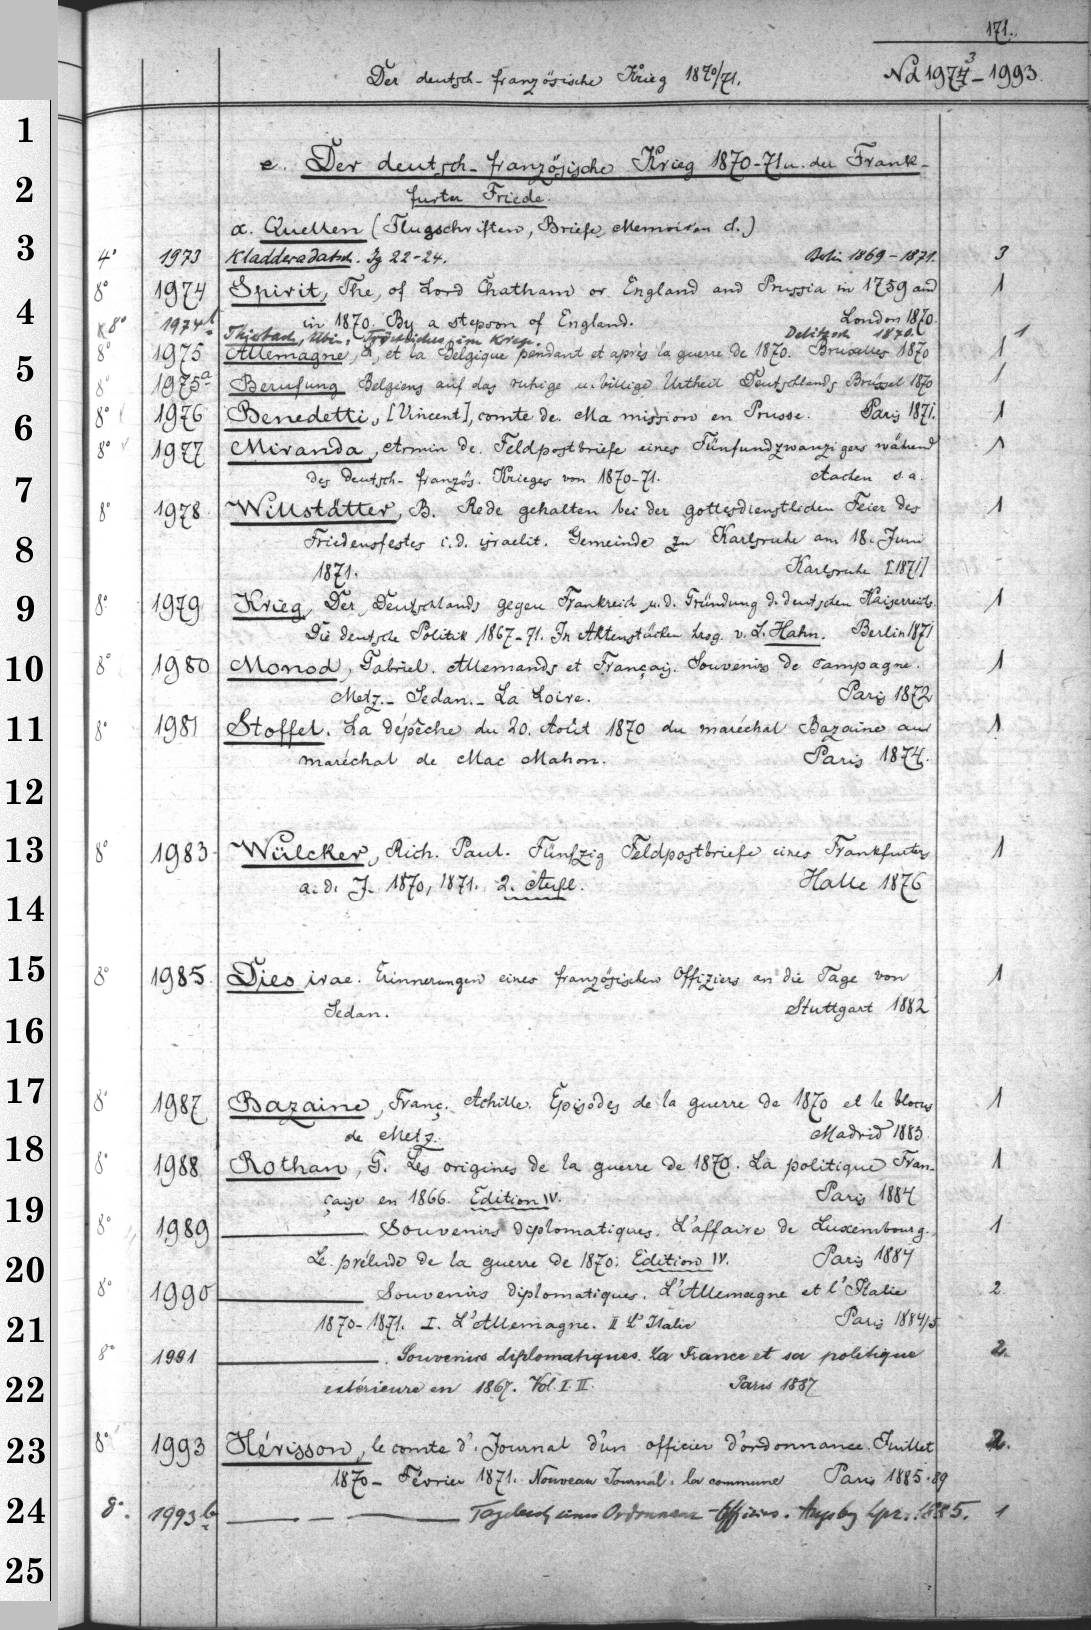 171.
Der deutsch-französische Krieg 1870/71. Nd 1973 - 1993.
e. Der deutsch-französische Krieg 1870-71 u. der Frank-
furter Friede.
α. Quellen (Flugschriften, Briefe, Memoiren d.)
4° 1973 Kladderadatsch. Jg 22-24. Berlin 1869-1871. 3
8° 1974 Spirit, The, of Lord Chatham or England and Prussia in 1759 and 1
in 1870. By a stepson of England. London 1870.
K 8° 1974 b Krieg. Delitzsch 1870. 1
8° 1975 Allemagne, L', et la Belgique pendant et après la guerre de 1870. Bruxelles 1870 1
8° 1975a Berufung Belgiens auf das ruhige u. billige Urtheil Deutschlands Brüssel 1870 1
8° 1976 Benedetti, [Vincent], comte de. Ma mission en Prusse. Paris 1871. 1
8° 1977 Miranda, Armin de. Feldpostbriefe eines Fünfundzwanzigers während 1
des deutsch-französ. Krieges von 1870-71. Aachen s.a.
8° 1978 Willstätter, B. Rede gehalten bei der gottesdienstlichen Feier des 1
Friedensfestes i.d. israelit. Gemeinde zu Karlsruhe am 18. Juni
1871. Karlsruhe [1871]
8° 1979 Krieg, Der, Deutschlands gegen Frankreich u.d. Gründung d. deutschen Kaiserreichs. 1
Die deutsche Politik 1867-71. In Aktenstücken hrsg. v. L. Hahn. Berlin 1871
8° 1980 Monod, Gabriel. Allemands et Français. Souvenirs de campagne. 1
Metz.- Sedan.- La Loire. Paris 1872
8° 1981 Stoffel. La dépêche du 20. Août 1870 du maréchal Bazaine au 1
maréchal de Mac Mahon. Paris 1874.
8° 1983 Wülcker, Rich. Paul. Fünfzig Feldpostbriefe eines Frankfurters 1
a.d. J. 1870, 1871. 2. Aufl. Halle 1876
8° 1985. Dies irae. Erinnerungen eines französischen Offiziers an die Tage von 1
Sedan. Stuttgart 1882
8° 1987 Bazaine, Franç. Achille. Épisodes de la guerre de 1870 et le blocus 1
de Metz. Madrid 1883.
8° 1988 Rothan, G. Les origines de la guerre de 1870. La politique Fran- 1
çaise en 1866. Edition IV. Paris 1884
8° 1989 Souvenirs diplomatiques. L'affaire de Luxembourg. 1
Le prélude de la guerre de 1870. Edition IV. Paris 1884
8° 1990 Souvenirs diplomatiques. L'Allemagne et l'Italie 2
1870-1871. I. L'Allemagne. II L'Italie Paris 1884/5
8° 1991 Souvenirs diplomatiques. La France et sa politique 2.
extérieure en 1867. Vol. I. II. Paris 1887
8° 1993 Hérisson, le comte d'. Journal d'un officier d'ordonnance. Juillet 2.
1870 - Février 1871. Nouveau Journal: la commune Paris 1885-89
8°. 1993 b Tagebuch eines Ordonnanz-Offiziers. Augsbg 1885. 1
1
2
3
4
5
6
7
8
9
10
11
12
13
14
15
16
17
18
19
20
21
22
23
24
25